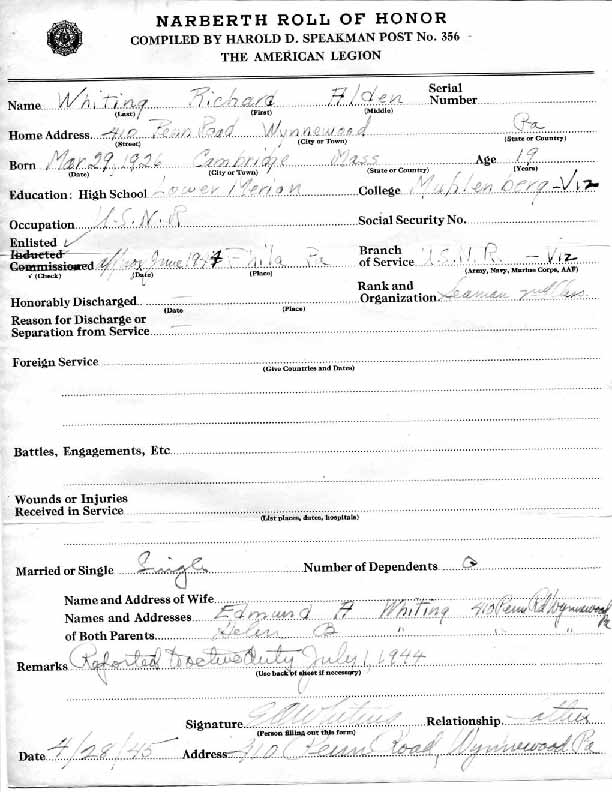 NARBERTH ROLL OF HONOR
COMPILED BY HAROLD D. SPEAKMAN POST No. 356
THE AMERICAN LEGION
Name Whiting Richard Alden Serial Number
(Last) (First) (Middle)
Home Address 410 Penn Road Wynnewood Pa
(Street) (City or Town) (State or Country)
Born Mar 29, 1926 Cambridge Mass Age 19
(Date) (City or Town) (State or Country) (Years)
Education: High School Lower Merion College Muhlenberg - V12
Occupation U.S.N.R Social Security No.
Enlisted ✓
Inducted
Commissioned approx June 1944 Phila Pa Branch of Service U.S.N.R. - V12
√ (Check) (Date) (Place) (Army, Navy, Marine Corps, AAF)
Honorably Discharged — Rank and Organization Seaman
(Date (Place)
Reason for Discharge or
Separation from Service —
Foreign Service
(Give Countries and Dates)
Battles, Engagements, Etc
Wounds or Injuries
Received in Service
(List places, dates, hospitals)
Married or Single Single Number of Dependents 0
Name and Address of Wife
Names and Addresses Edmund A Whiting 410 Penn Rd Wynnewood Pa
of Both Parents Helen B " " "
Remarks Reported to active duty July 1, 1944
(Use back of sheet if necessary)
Signature E A Whiting Relationship father
(Person filling out this form)
Date 4/28/45 Address 410 Penn Road, Wynnewood Pa